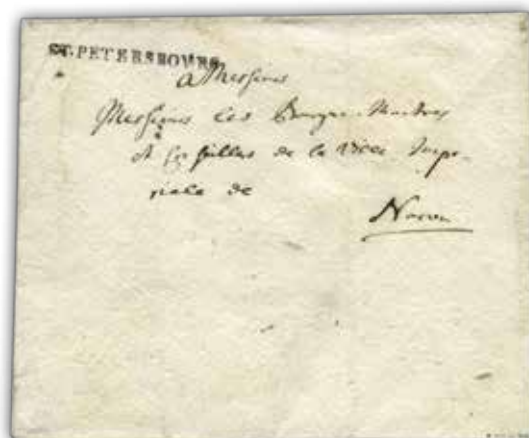 ST. PETERSBOURG
a Messieurs
Messieurs les Bourgue-Maitres
et de la Ville Impe-
riale de
Narva